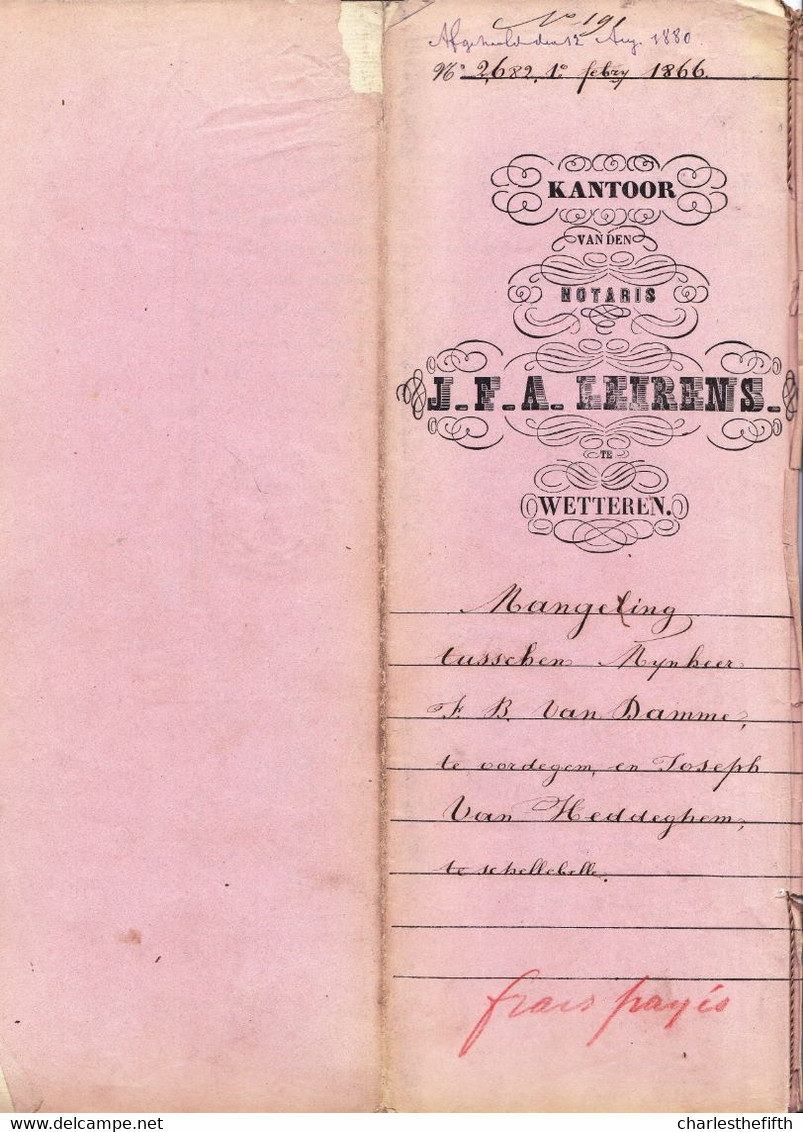 N° 191
Afgehaald den 12 Aug. 1880.
N° 2,682, 1° febry 1866.
KANTOOR
VAN DEN
NOTARIS
J. F. A. LEIRENS.
TE
WETTEREN.
Mangeling
tusschen Mynheer
F. B. Van Damme,
te oordegem, en Joseph
Van Heddeghem,
te schellebelle.
frais payés
delcampe.net
charlesthefifth